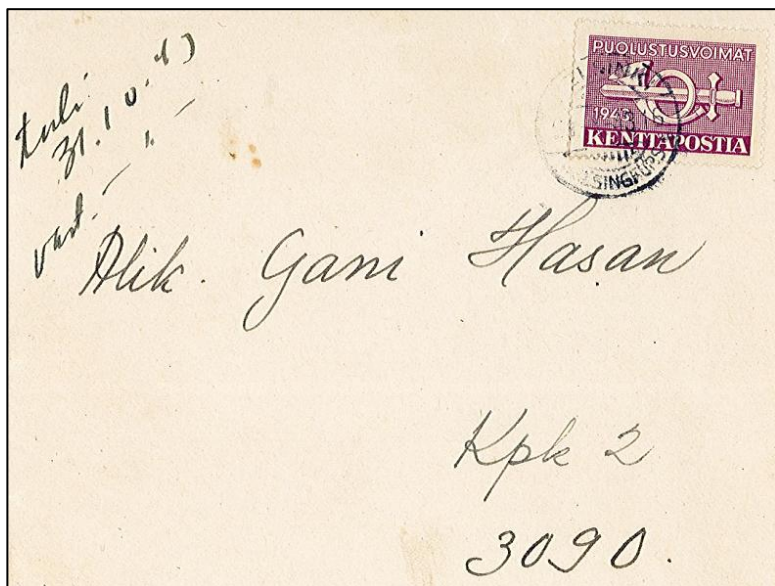 tuli
31.10.43
vast. — " —
PUOLUSTUSVOIMAT
1943
KENTTÄPOSTIA
Alik. Gani Hasan
Kpk 2
3090.